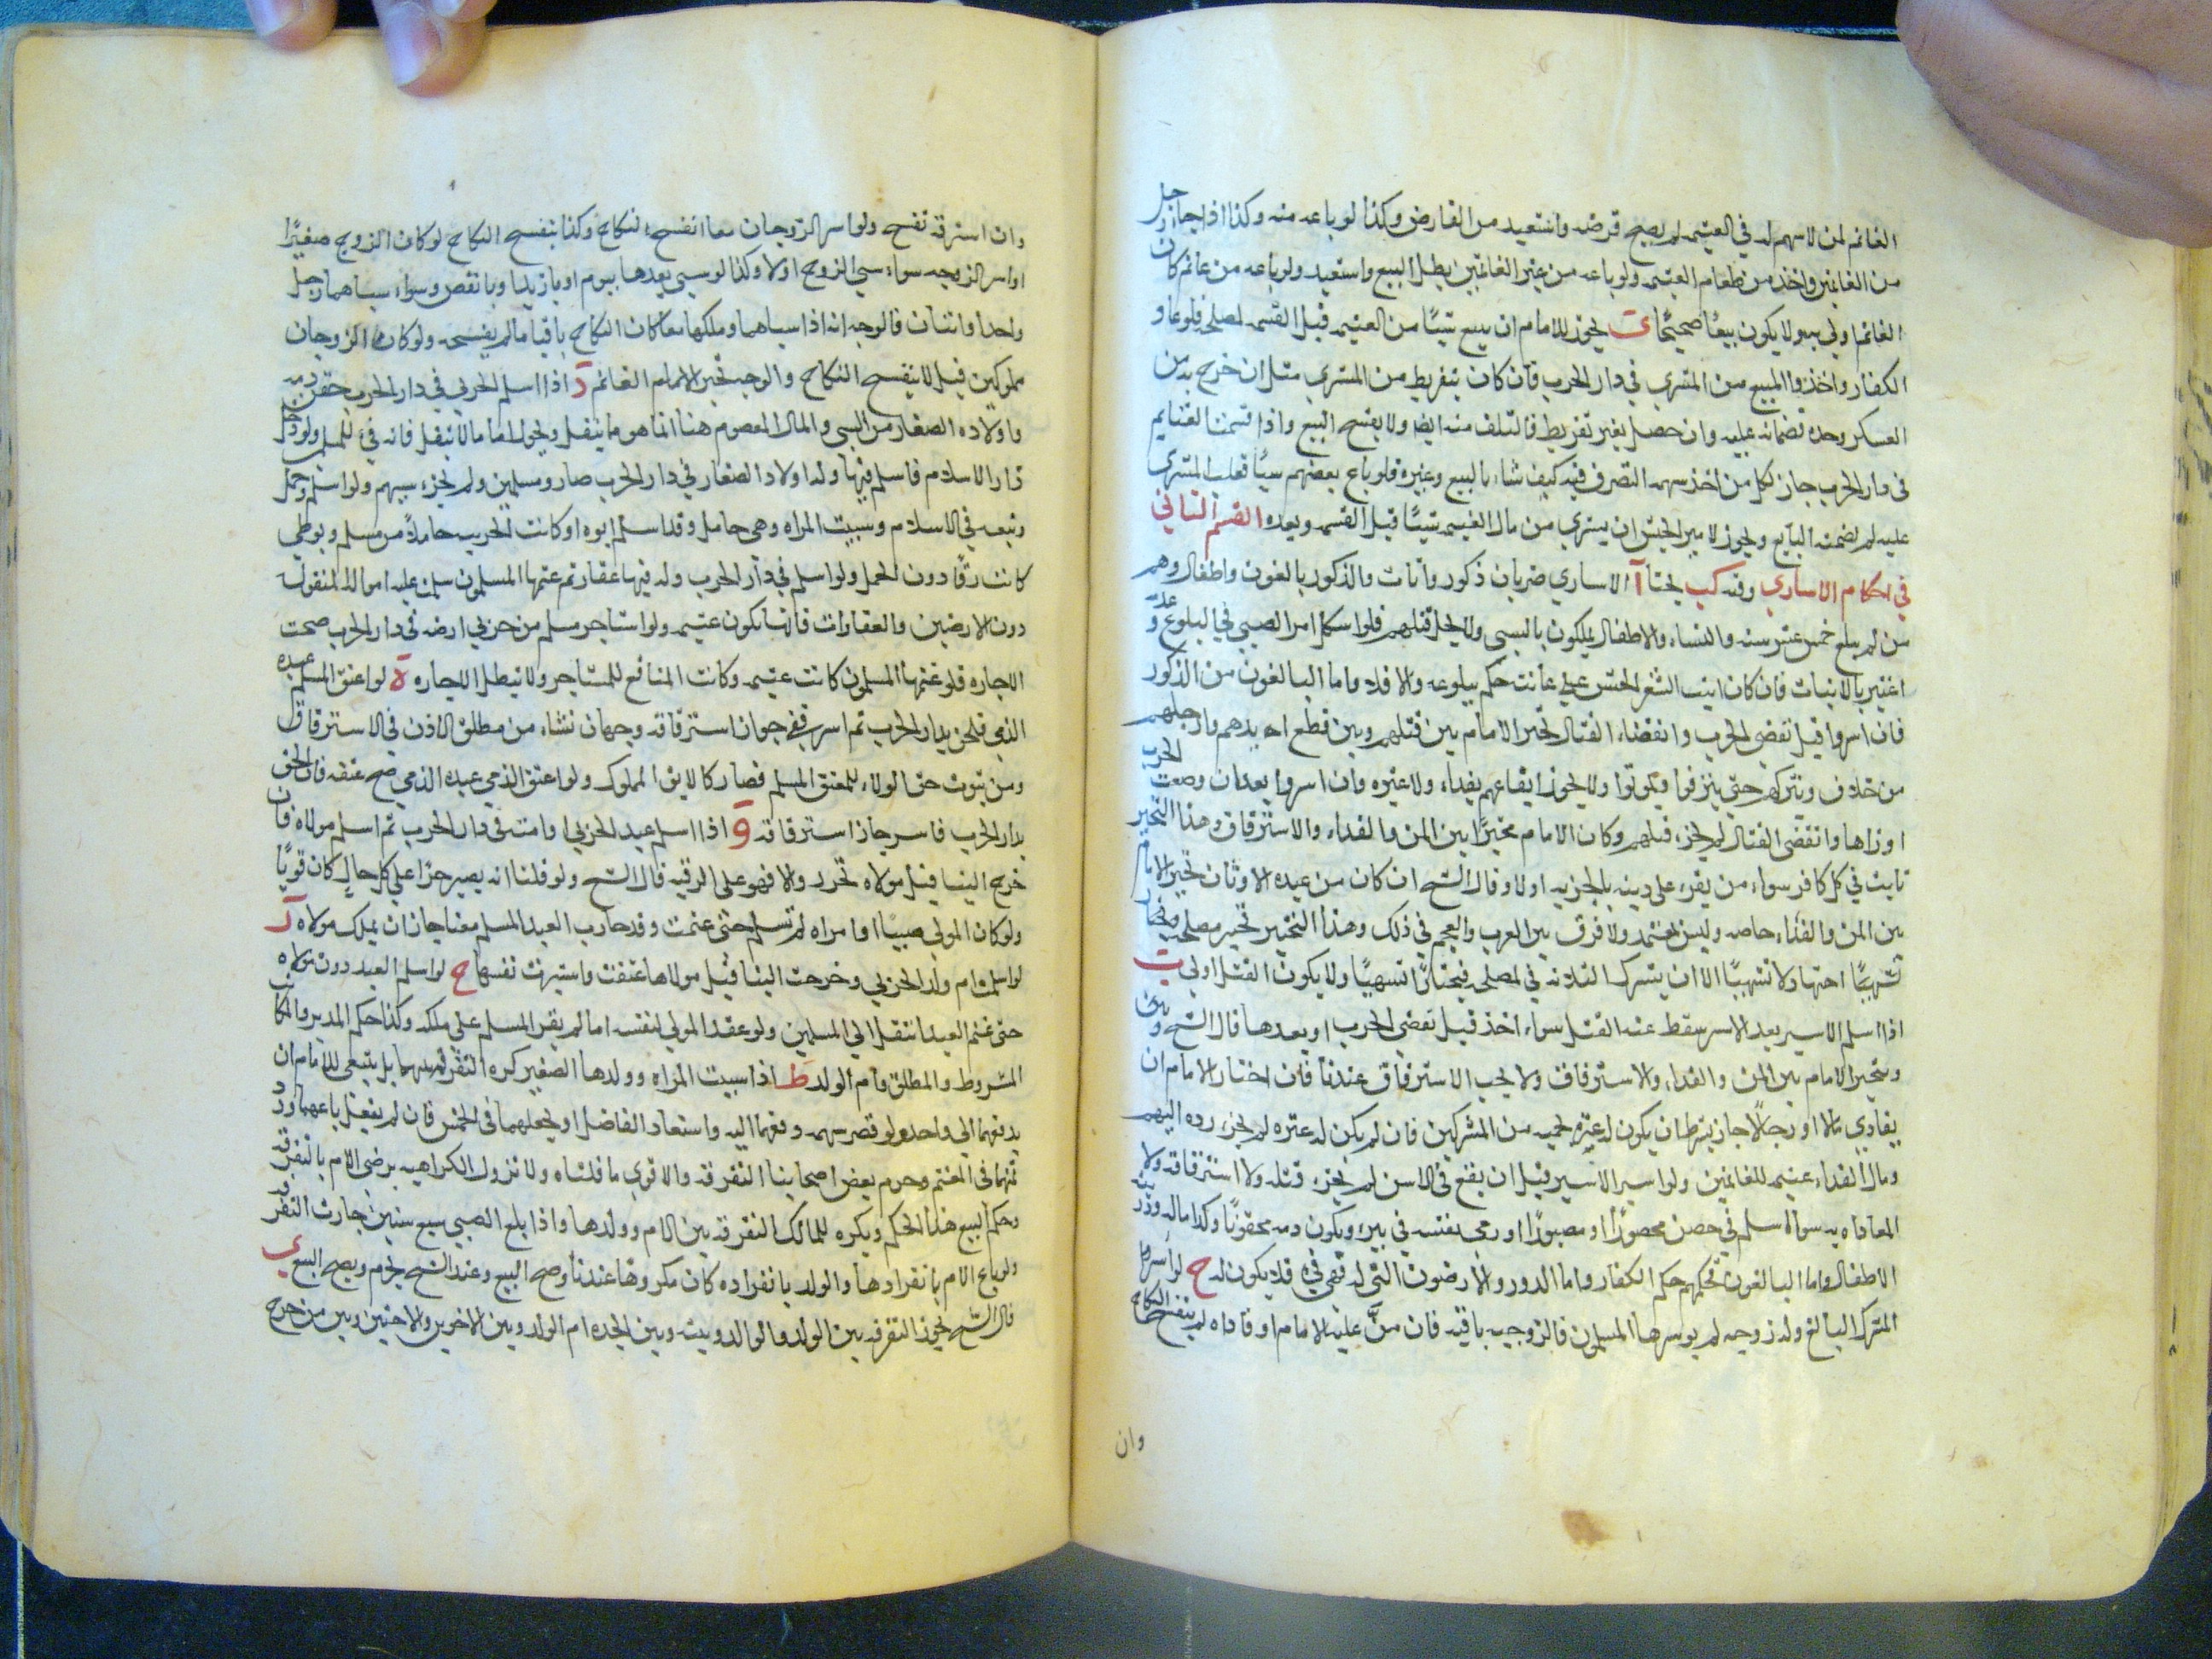 الغانم لمن لا سهم له في الغنيمه لم يصح قرضه واستعيد من القارض وكذا لو باعه منه وكذا اذا جاز رجل
من الغانمين واخذ من طعام الغنيمه ولو باعه من غير الغانمين بطل البيع واستعيد ولو باعه من غانم كان
الغانم اولي به ولا يكون بيعًا صحيحًا يجوز للامام ان يبيع شيئًا من الغنيمه قبل القسمه لمصلحه فلو عاود
الكفار واخذوا المبيع من المشتري في دار الحرب فان كان بتفريط من المشتري مثل ان خرج به من
العسكر وحده فضمانه عليه وان حصل بغير تفريط فالتلف منه ايضا ولا يفسخ البيع واذا قسمت الغنايم
في دار الحرب جاز لكل من اخذ سهمه التصرف فيه كيف شاء بالبيع وغيره فلو باع بعضهم شيئًا فغلب المشتري
عليه لم يضمنه البايع ويجوز لامير الجيش ان يشتري من مال الغنيمه شيئًا قبل القسمه وبعده القسم الثاني
في احكام الاساري وفيه كب بحثا آ الاساري ضربان ذكور واناث والذكور بالغون واطفال وهم
من لم يبلغ خمس عشر سنه والنساء والاطفال يملكون بالسبي ولا يحل قتلهم فلو اشكل امر الصبي في البلوغ وعدمه
اعتبر بالانبات فان كان انبت الشعر الخشن علي عانته حكم ببلوغه والا فلا واما البالغون من الذكور
فان اسروا قبل تقضي الحرب وانقضاء القتال تخير الامام بين قتلهم وبين قطع ايديهم وارجلهم
من خلاف ويتركهم حتي ينزفوا ويموتوا ولا يجوز ابقاءهم بفداء ولا غيره وان اسروا بعد ان وضعت الحرب
اوزارها وانقضي القتال لم يجز قتلهم وكان الامام مخيرًا بين المن والفداء والاسترقاق وهذا التخيير
ثابت في كل كافر سواء من يقر على دينه بالجزيه اولا وقال الشيخ ان كان من عبده الاوثان تخير الامام
بين المن والفداء خاصه وليس بمعتمد ولا فرق بين العرب والعجم في ذلك وهذا التخيير تخيير مصلحه
اجتهادًا لا تشهيًا الا ان يشترك الثلاثه في المصلحه فيختار تشهيًا ولا يكون القتل اولي ب
اذا اسلم الاسير بعد الاسر سقط عنه القتل سواء اخذ قبل تقضي الحرب او بعدها قال الشيخ
ويتخير الامام بين المن والفداء والاسترقاق ولا يجب الاسترقاق عندنا فان اختار الامام ان
يفادي مالا او رجالًا جاز بشرط ان يكون له عشيره تحميه من المشركين فان لم يكن له عشيره لم يجز رده اليهم
ومال الفداء غنيمه للغانمين ولو اسلم الاسير قبل ان يقع في الاسر لم يجز قتله ولا استرقاقه ولا
المفاداه به سواء اسلم في حصن محصورًا او مصبورًا او رمي بنفسه في بير ويكون دمه محقونًا وكذا ماله وذريته
الاطفال واما البالغون فحكمهم حكم الكفار واما الدور والارضون التي له فهي في فلا يكون له ج لو اسر
المشرك البالغ وله زوجه لم يوسرها المسلمون فالزوجيه باقيه فان منّ عليه الامام او فاداه لم ينفسخ النكاح
وان
وان استرقه تفسخ ولو اسر الزوجان معا انفسخ النكاح وكذا ينفسخ النكاح لو كان الزوج صغيرًا
او اسر الزوجه سواء سبي الزوج اولا وكذا لو سبي بعدها بيوم او بازيد او بانقص وسواء سباهما رجل
واحد او اثنان فالوجه انه اذا سباهما وملكهما معا كان النكاح باقيا ما لم يفسخه ولو كان الزوجان
مملوكين قيل لا ينفسخ النكاح والوجه تخير الامام الغانم د اذا اسلم الحربي في دار الحرب حقن دمه
واولاده الصغار من السبي والمال المعصوم هنا انما هو ما ينقل ويحول اما ما لا ينقل فانه في للمسلمين ولو دخل
دار الاسلام فاسلم فيها وله اولاد الصغار في دار الحرب صاروا مسلمين ولم يجز سبيهم ولو اسلم وحمل
وتبعه في الاسلام وسبيت المراه وهي حامل وقد اسلم ابوه او كانت الحربيه حاملًا من مسلم بوطي
كانت رقًا دون الحمل ولو اسلم في دار الحرب وله فيها عقار ثم غنمها المسلمون سلمت عليه امواله المنقوله
دون الارضين والعقارات فانها تكون غنيمه ولو استاجر مسلم من حربي ارضه في دار الحرب صحت
الاجاره فلو غنمها المسلمون كانت غنيمه وكانت المنافع للمستاجر ولا تبطل الاجاره ه لو اعتق المسلم عبده
الذي فلحق بدار الحرب ثم اسر ففي جواز استرقاقه وجهان نشاء من مطلق الاذن في الاسترقاق
ومن ثبوت حق الولاء للمعتق المسلم فصار كالابق المملوك ولو اعتق الذمي عبده الذمي صح عتقه فان لحق
بدار الحرب فاسر جاز استرقاقه و اذا اسلم عبد الحربي او امته في دار الحرب ثم اسلم مولاه فان
خرج الينا قبل مولاه تحرر والا فهو على الرقيه قال الشيخ ولو قلنا انه يصير حرًا علي كل حال كان قويًا
ولو كان المولي صبيًا او امراه لم تسلم حتى غنمت وقد حارب العبد المسلم معنا جاز ان يملك مولاه ز
لو اسلمت ام ولد الحربي وخرجت الينا قبل مولاها عتقت واستبرئت نفسها ح لو اسلم العبد دون مولاه
حتى غنم العبد انتقل الي المسلمين ولو عقد المولي لنفسه امانا لم يقر المسلم علي ملكه وكذا حكم المدبر والمكاتب
المشروط والمطلق وام الولد ط اذا سبيت المراه وولدها الصغير كره التفرقه بينهما بل ينبغي للامام ان
يدفعهما الي واحد ولو قصر سهمه دفعهما اليه واستعاد الفاضل او يجعلهما في الخمس فان لم يفعل باعهما ورد
ثمنهما في المغنم وحرم بعض اصحابنا التفرقه والاقوي ما قلناه ولا تزول الكراهيه برضي الام بالتفرقه
وحكم البيع هذا الحكم ويكره للمالك التفرقه بين الام وولدها واذا بلغ الصبي سبع سنين جازت التفرقه
ولو باع الام بانفرادها والولد بانفراده كان مكروها عندنا وصح البيع وعند الشيخ يحرم ويصح البيع ي
قال الشيخ يجوز التفرقه بين الولد والوالد وبينه وبين الجده ام الولد وبين الاخوين والاختين وبين من خرج